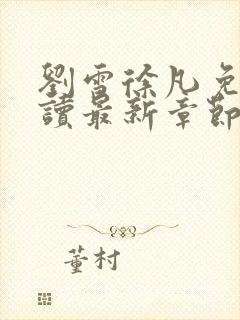 劉雪徐凡免
讀最新章節
董村